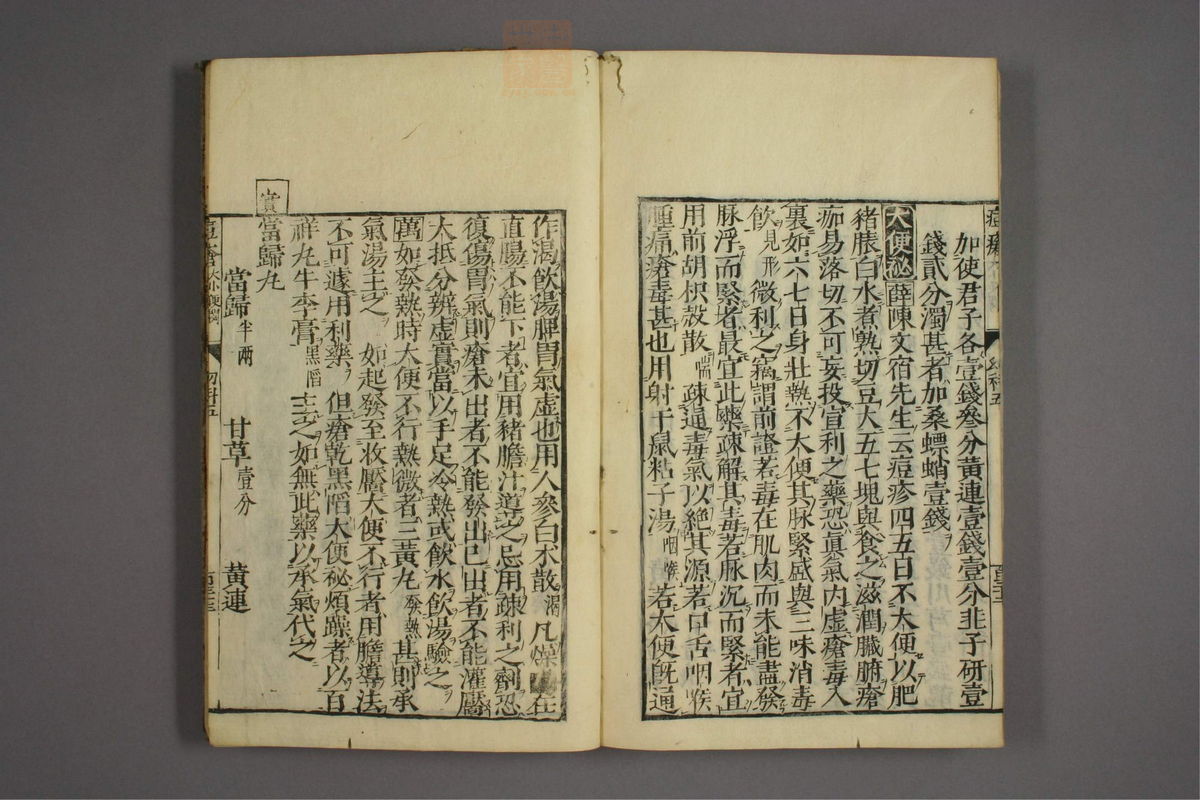 加使君子各壹錢叄分黃連壹錢壹分韭子研壹
錢貳分濁甚者加桑螵蛸壹錢
大便祕 薛陳文宿先生云痘疹四五日不大便以肥
豬膘白水煮熟切豆大五七塊與食之滋潤臟腑瘡
痂易落切不可妄投宣利之藥恐眞氣內虛瘡毒入
裏如六七日身壯熱不大便其脉緊盛與三味消毒
飮見形微利之竊謂前證若毒在肌肉而未能盡發
脉浮而緊者最宜此藥疎解其毒若脉沉而緊者宜
用前胡枳殼散喘疎通毒氣以絕其源若口舌咽喉
腫痛瘡毒甚也用射干鼠粘子湯咽喉若大便旣通
作渴飮湯脾胃氣虛也用人參白朮散渴凡燥在
直腸不能下者宜用豬膽汁導之忌用疎利之劑恐
復傷胃氣則瘡未出者不能發出已出者不能灌靨
大抵分辨虛實當以手足冷熱或飮水飮湯驗之
萬如發熱時大便不行熱微者三黃丸發熱甚則承
氣湯主之 如起發至收靨大便不行者用膽導法
不可遽用利藥 但瘡乾黑陷大便祕煩躁者以百
祥丸牛李膏黑陷主之如無此藥以承氣代之
當歸丸
當歸半兩 甘草壹分 黃連
痘瘡大小便
幼科五